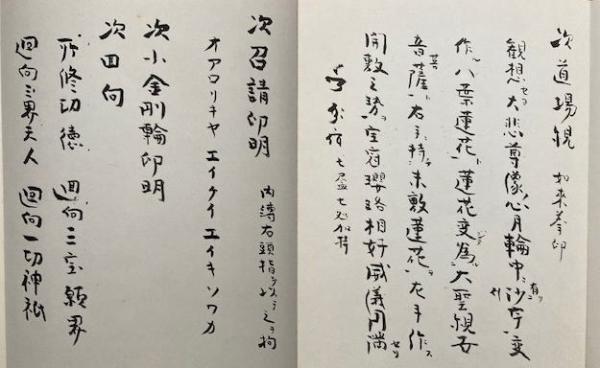 次道場観 如来拳印
観想セヨ大悲尊像心月輪中ニ有リ沙字変
作八葉蓮花蓮花変為大聖観世
音菩薩右手持未敷蓮花左手作ス
開敷之勢宝冠瓔珞相好威儀円満セリ
七処加持
次召請印明 内縛右頭指ヲ以テ之ヲ拘
オアロリキヤ エイケイエイキソワカ
次小金剛輪印明
次回向
所修功徳 廻向三宝願界
廻向三界天人 廻向一切神祇